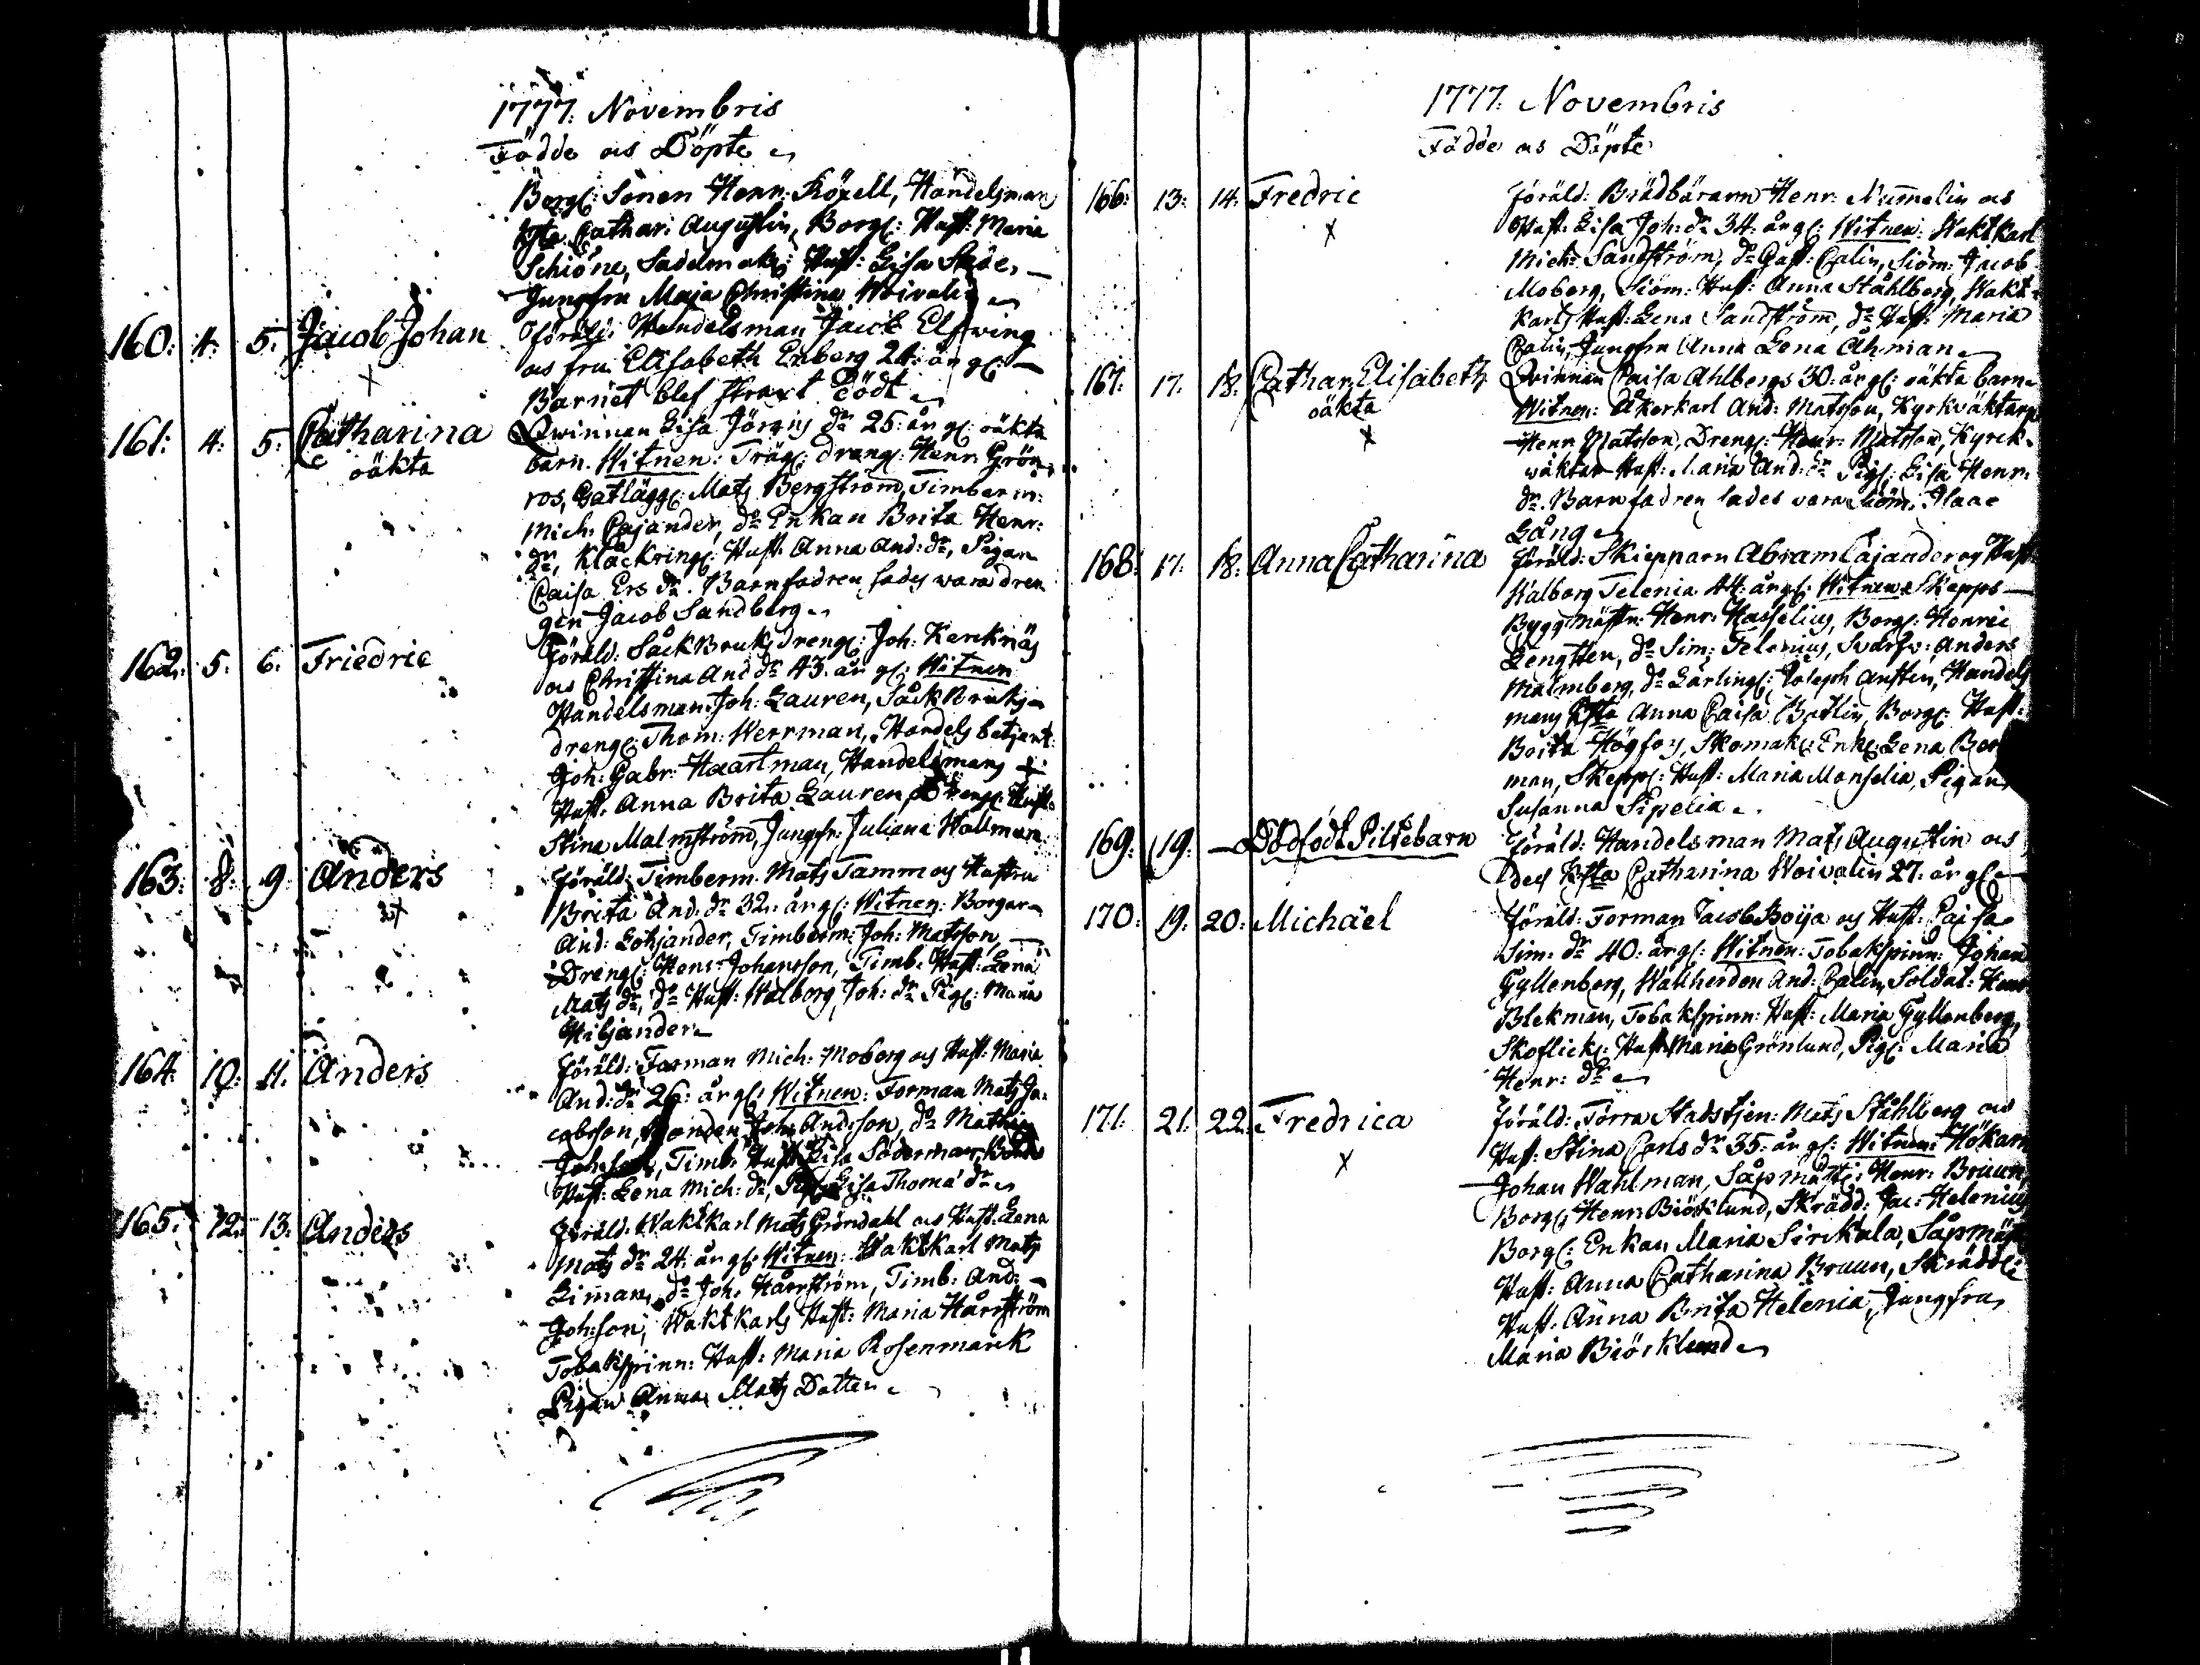 1777: Novembris
Födde ock Döpte
Borg: Sonen Henr: Höxell, Handelsman
Cathar: Augustin, Borg: Hust: Maria
Schiöne, Sadelmak: Hust: Lisa
Jungfru Maja Christina Woivalin
160: 4: 5: Jacob Johan Föräld: Handelsman Jacob Elfving
ock fru Elisabeth Enberg 24: år gl:
Barnet blef strax Födt
161: 4: 5: Catharina Qwinnan Lisa Jörens dr 25: år gl: oäkta
oäkta barn. Witnen: Träg: dreng: Henr: Grön
ros, Gatlägg: Mats Bergström, Timberm:
Mich: Cajander, do Enkan Brita Henr:
dr, Klåckring: Hust: Anna And: dr, Pigan
Caisa Ers dr. Barnfadren sades wara dren
gen Jacob Sandberg
162: 5: 6: Friedric Föräld: Såckbruks dreng: Joh: Kerknäs
ock Christina And dr 43: år gl: Witnen
Handelsman: Joh: Lauren, Såckbruks
dreng: Thom: Werrman, Handels betjent:
Joh: Gabr: Haartman, Handelsmans
Hust: Anna Brita Lauren, Dreng: Hust:
Stina Malmström, Jungfr: Juliana Wallman
163: 8: 9: Anders Föräld: Timberm: Mats Tamm ock Hustru
Brita And: dr 32: år gl: Witnen: Borgar
And: Lohjander, Timberm: Joh: Matsson,
Dreng: Henr: Johansson, Timb: Hust: Lena
Mats dr, do Hust: Walborg Joh: dr Pig: Maria
Hiljander
164: 10: 11: Anders Föräld: Forman Mich: Moberg ock Hust: Maria
And: dr 26: år gl: Witnen: Forman Mats Ja-
cobsson, Bonden Joh: Andsson, do Mathias
Johsson, Timb: Hust: Lisa Söderman,
Hust: Lena Mich: dr, Pig: Lisa Thoma dr
165: 12: 13: Anders Föräld: Waktkarl Mats Gröndahl ock Hust: Lena
Mats dr 24: år gl: Witnen: Waktkarl Mats
Liman, do Joh: Hårrström, Timb: And:
Joh:son, Waktkarls Hust: Maria Hårrström
Tobakspinn: Hust: Maria Rosenmarck
Pigan Anna Mats Dotter
1777: Novembris
Födde ock Döpte
166: 13: 14: Fredric Föräld: Brädbäraren Henr: Nummelin ock
Hust: Lisa Joh: dr 34: år gl: Witnen: Waktkarl
Mich: Sandström, do Gust: Calin, Siöm: Jacob
Moberg, Siöm: Hust: Anna Ståhlberg, Wakt-
karls Hust: Lena Sandström, do Hust: Maria
Calin, Jungfru Anna Lena Åhman
167: 17: 18: Cathar: Elisabeth Qwinnan Caisa Ahlbergs 30: år gl: oäkta barn
oäkta Witnen: Åkerkarl And: Matsson, Kyrkväktar
Henr: Matsson, Dreng: Henr: Matsson, Kyrck-
wäktar Hust: Maria And: dr Pig: Lisa Henr:
dr. Barnfadren sades vara Siöm: Isaac
Gång
168: 17: 18: Anna Catharina Föräld: Skepparn Abram Cajander ock Hust:
Walborg Telenia 44: år gl: Witnen: Skepps
Byggmästn: Henr: Hasselius, Borg: Henric
Lengsten, do Sim: Telenius, Svarfv: Anders
Malmberg, do Lärling: Joseph Austin, Handels
mans Anna Caisa Botlin, Borg: Hust:
Brita Högfors, Skomak: Enk: Lena Berg
man, Skepp: Hust: Maria Monselia, Pigan
Susanna Sipelia
169: 19: — Dödfödt Piltebarn Föräld: Handelsman Mats Augustin ock
Des Catharina Woivalin 27: år gl:
170: 19: 20: Michäel Föräld: Forman Jacob Boija ock Hust: Caisa
Sim: dr 40: år gl: Witnen: Tobakspinn: Johan
Gyllenberg, Wallherden And: Calin, Soldat: Henr
Blekman, Tobakspinn: Hust: Maria Gyllenberg,
Skoflick: Hust: Maria Grönlund, Pig: Maria
Henr: dr
171: 21: 22: Fredrica Föräld: Förra Stadstjen: Mats Ståhlberg ock
Hust: Stina Carls dr 35: år gl: Witnen: Hökarn
Johan Wahlman, Såpmäst: Henr: Bruun,
Borg: Henr: Biörklund, Skrädd: Jac: Helenius
Borg: Enkan Maria Sirckala, Såpmäst
Hust: Anna Catharina Bruun, Skrädd:
Hust: Anna Brita Helenia, Jungfru
Maria Biörklund